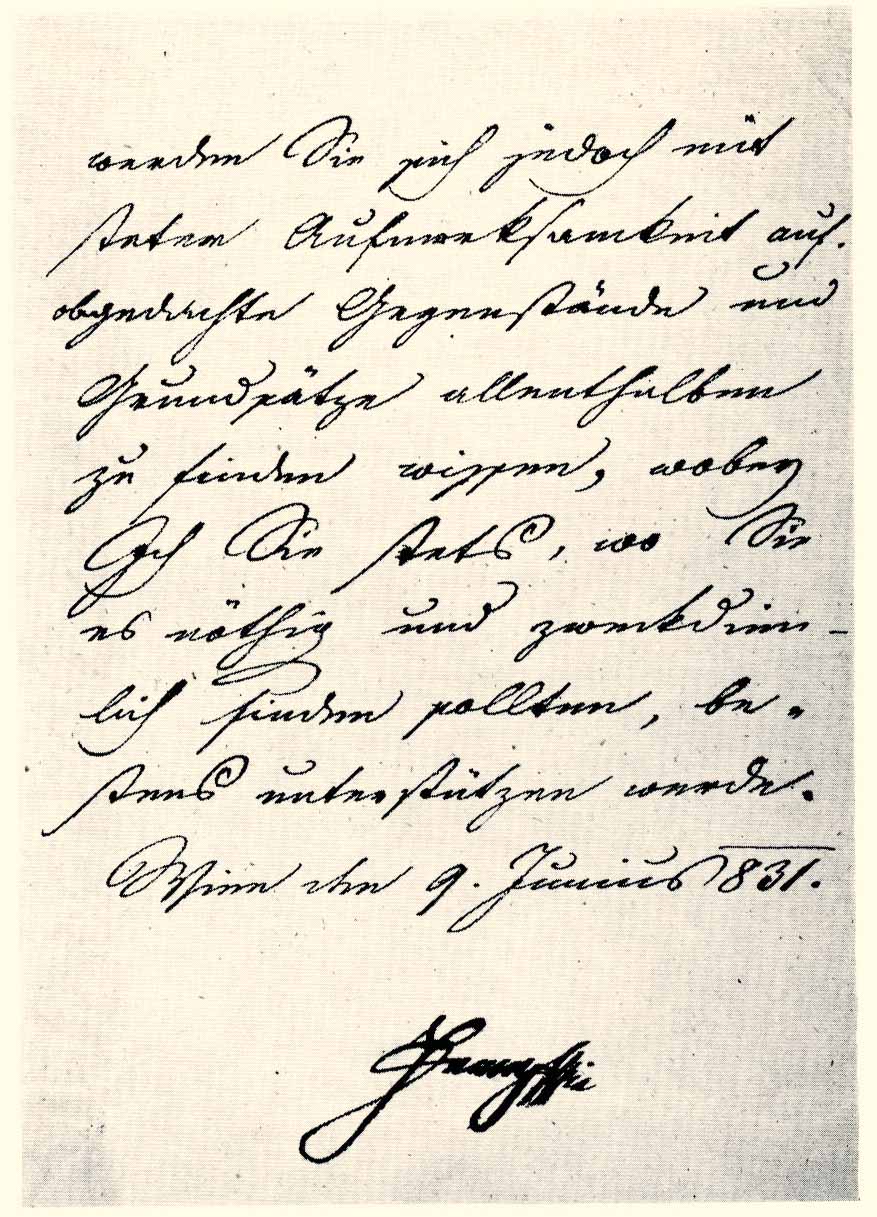 werden Sie sich jedoch mit
steter Aufmerksamkeit auf
obgedachte Gegenstände und
Grundsätze allenthalben
zu finden wissen, wobey
Ich Sie stets, wo Sie
es nöthig und zweckdien-
lich finden sollten, be-
stens unterstützen werde.
Wien den 9. Junius 831.
Franz